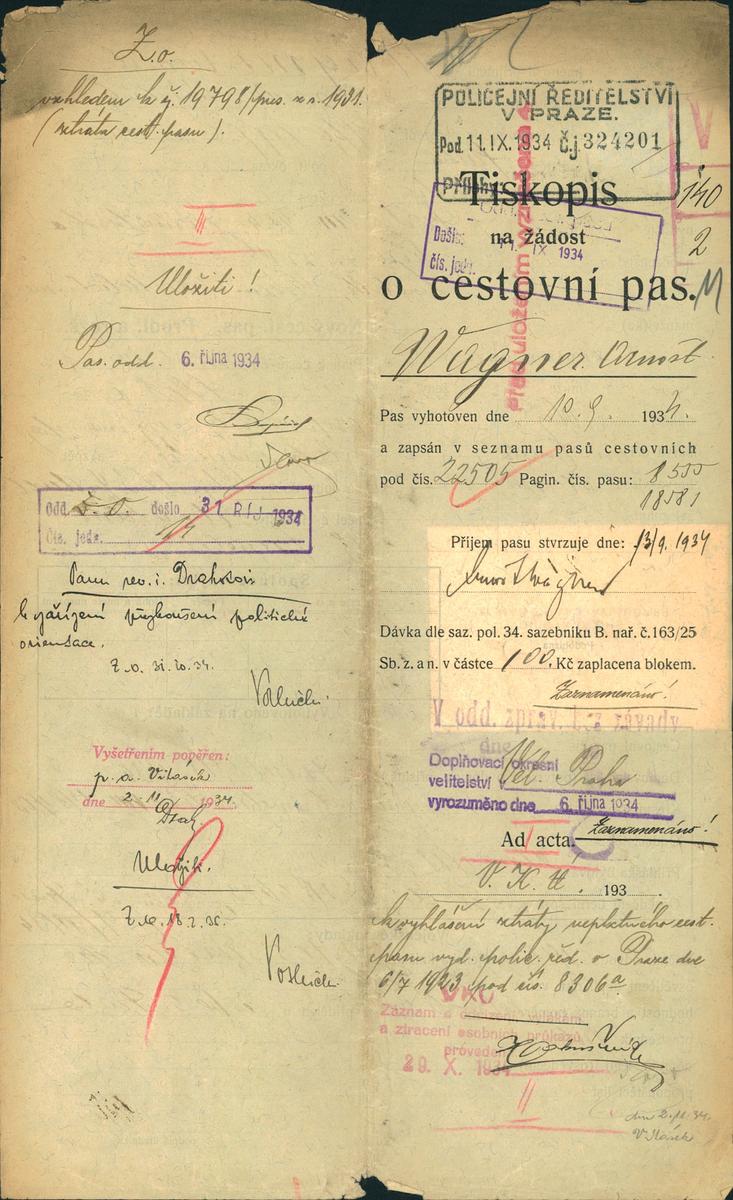 Z. o.
vzhledem k čj. 19798/pres. z r. 1931.
(ztráta cest. pasu).
II
Uložiti!
Pas. odd. 6. října 1934
Odd. Z. O. došlo 31 ŘÍJ. 1934
Čís. jedn.
Panu rev. i. Drahošovi
k zařízení přezkoušení politické
orientace.
Z. o. 31. 10. 34.
Vyšetřením pověřen:
p. a. Vitásek
dne 2. 11. 1934.
Uložiti.
POLICEJNÍ ŘEDITELSTVÍ
V PRAZE.
Pod. 11. IX. 1934 č.j. 324201
Přílohy
V
140
2
Tiskopis
Došlo: 11. IX 1934
čís. jedn.
na žádost
o cestovní pas.
Wagner Arnošt
Pas vyhotoven dne 10. 9. 1934.
a zapsán v seznamu pasů cestovních
pod čís. 22505 Pagin. čís. pasu: 8555
18581
Příjem pasu stvrzuje dne: 13/9. 1934
Dávka dle saz. pol. 34. sazebníku B. nař. č. 163/25
Sb. z. a n. v částce 100, Kč zaplacena blokem.
Zaznamenáno!
V odd. zprav. l. z závady
dne
Doplňovací okresní
velitelství v Vel. Praha
vyrozuměno dne 6. října 1934
Zaznamenáno!
Ad acta.
V. K. Ú. 193
k vyhlášení ztráty neplatného cest.
pasu vyd. polic. řed. v Praze dne
6/7 1923 pod čís. 8306a
VKÚ
Záznam o
a ztracení osobních průkazů
proveden
29. X. 1934
II
dne 2. 11. 34.
Vitásek